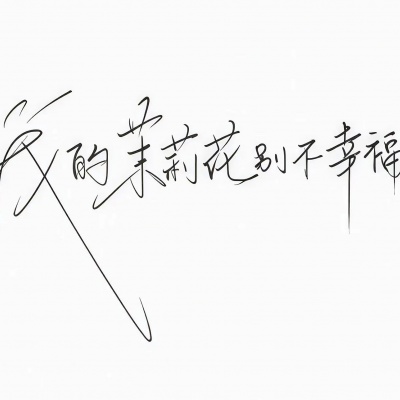 我的茉莉花别不幸福